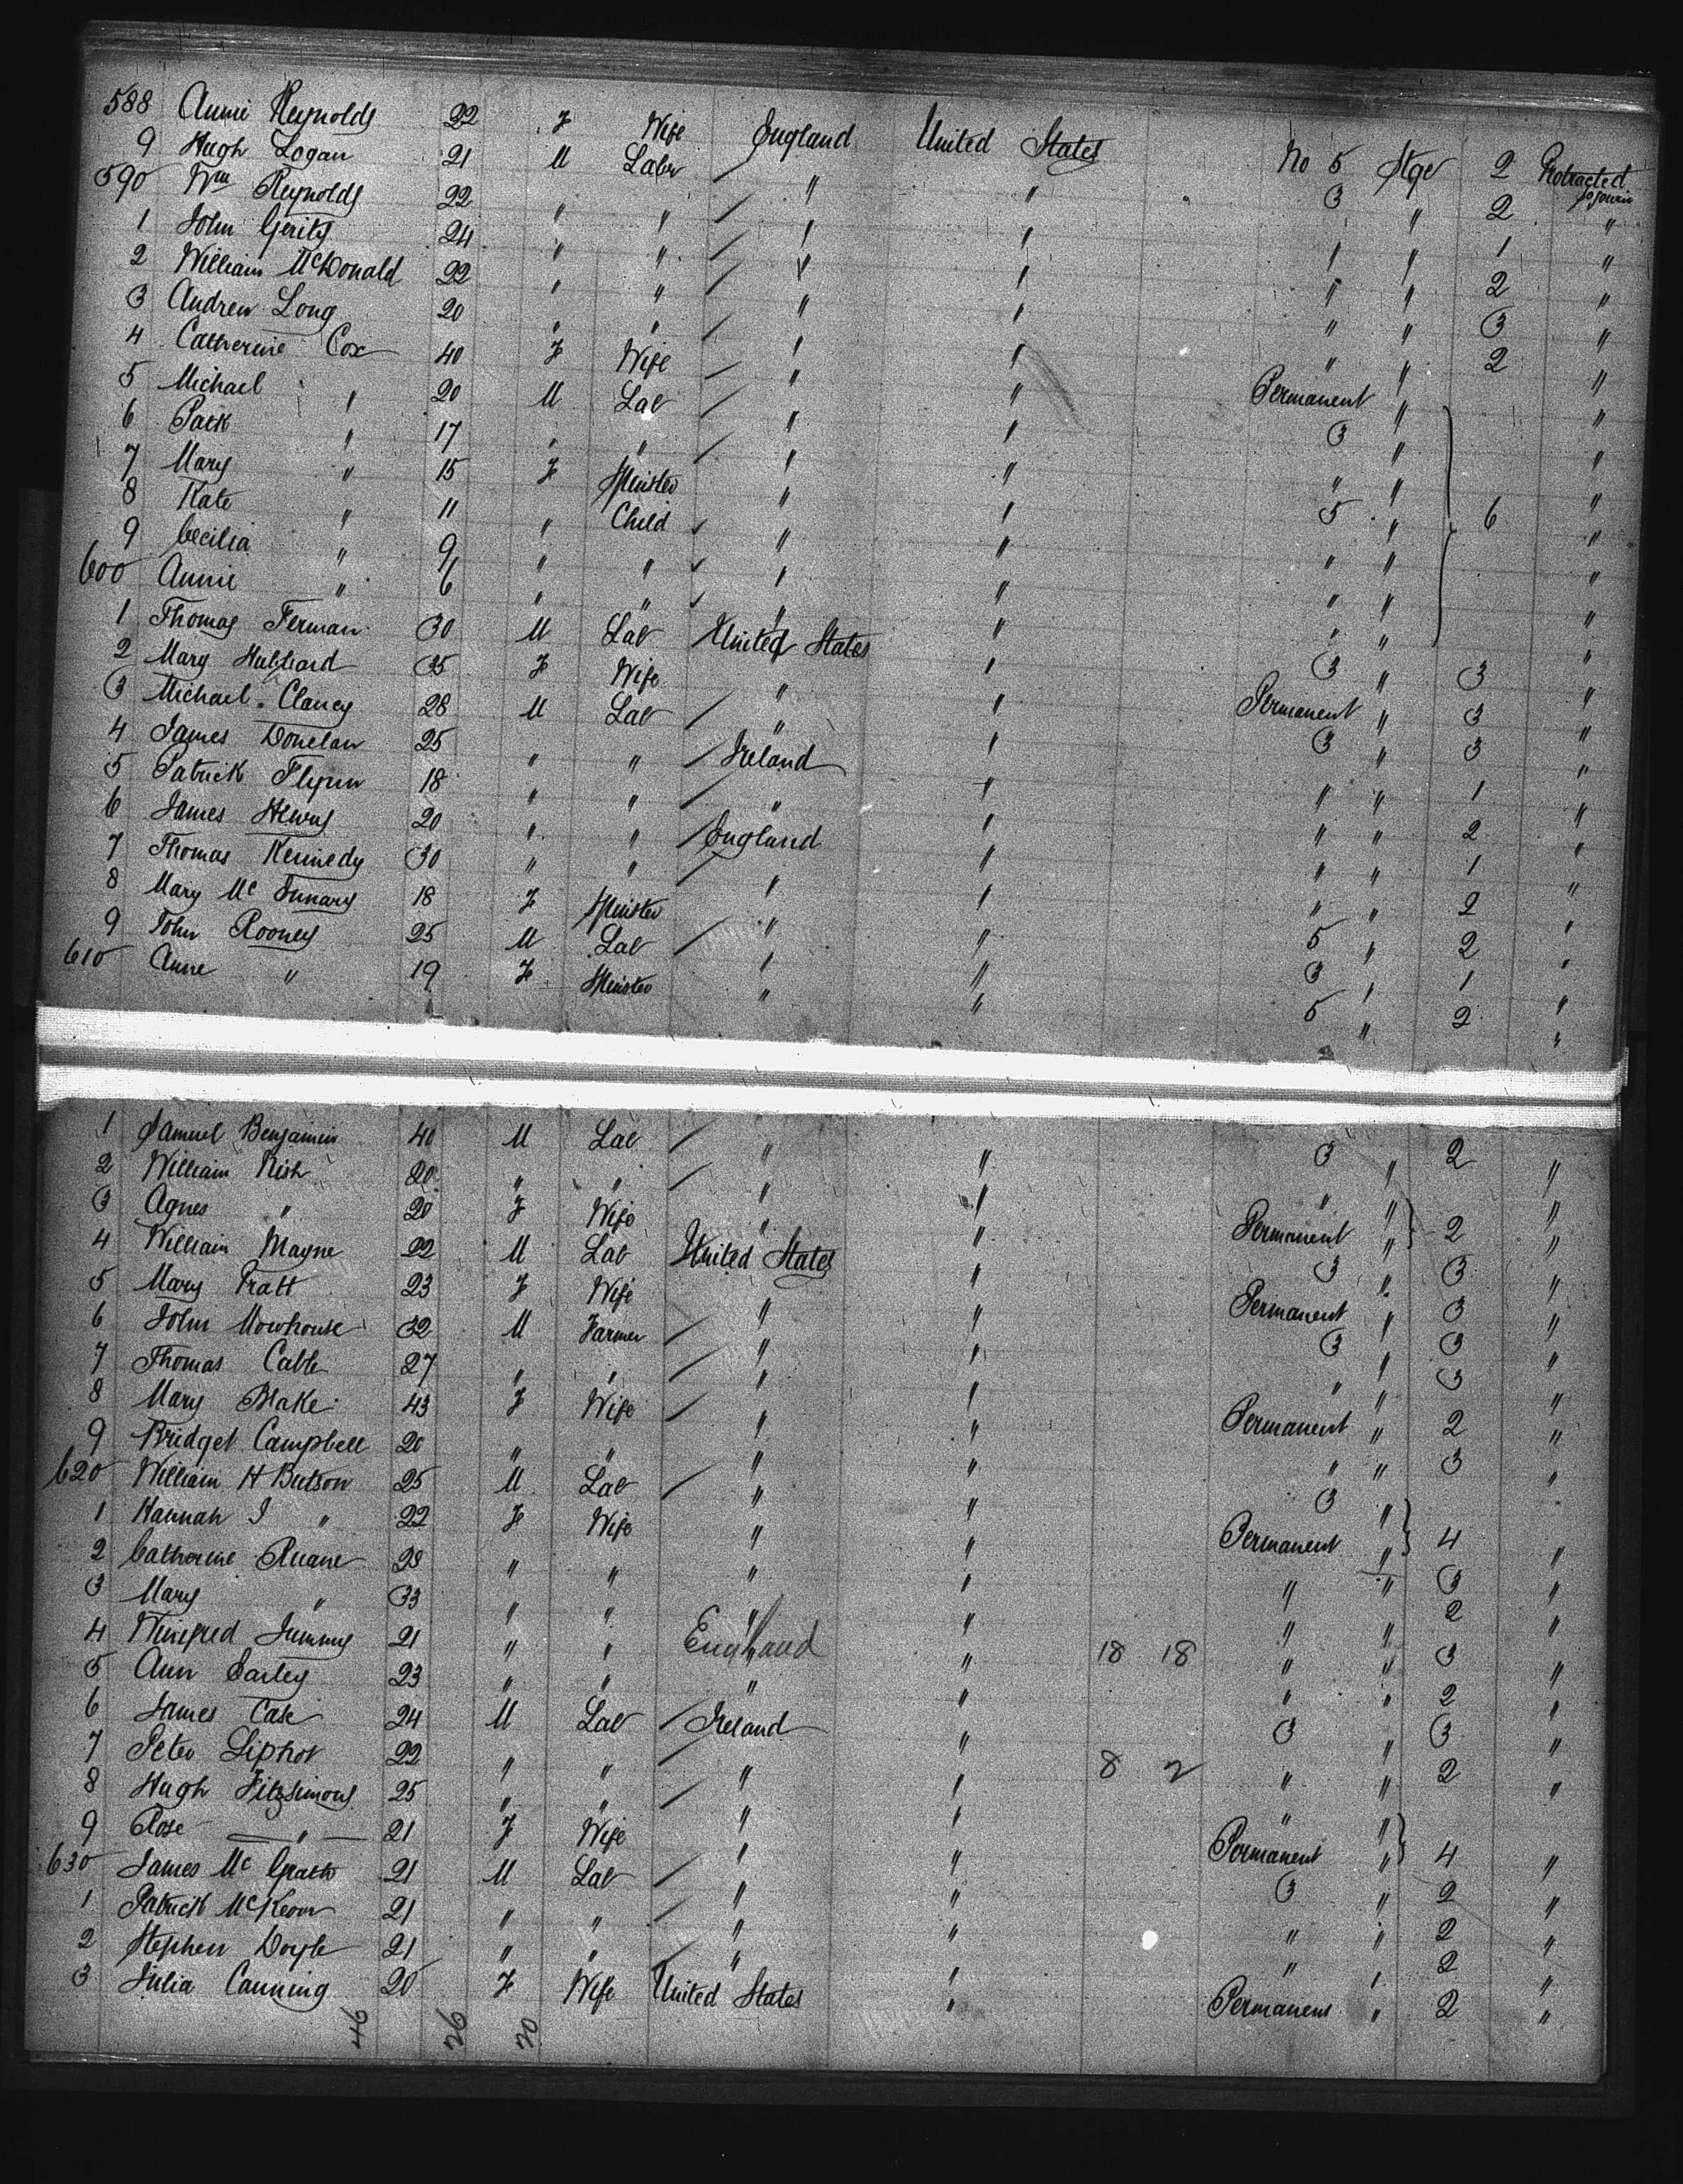 588 Annie Reynolds 22 F Wife England United States No 5 Stge 2 Protracted Sojourn
9 Hugh Logan 21 M Labr " " 3 " 2 "
590 Wm Reynolds 22 " " " " " " 1 "
1 John Gerity 24 " " " " " " 2 "
2 William McDonald 22 " " " " " " 3 "
3 Andrew Long 20 " " " " " " 2 "
4 Catherine Cox 40 F Wife " " Permanent " "
5 Michael " 20 M Lab " " 3 " "
6 Patk " 17 " " " " " " "
7 Mary " 15 F Spinster " " 5 " 6 "
8 Kate " 11 " Child " " " " "
9 Cecilia " 9 " " " " " " "
600 Annie " 6 " " " " " " "
1 Thomas Ferman 30 M Lab United States " 3 " 3 "
2 Mary Hubbard 35 F Wife " " Permanent " 3 "
3 Michael Clancy 28 M Lab " " 3 " 3 "
4 James Donelan 25 " " Ireland " " " 1 "
5 Patrick Flynn 18 " " " " " " 2 "
6 James Henry 20 " " England " " " 1 "
7 Thomas Kennedy 30 " " " " " " 2 "
8 Mary Mc 18 F Spinster " " 5 " 2 "
9 John Rooney 25 M Lab " " 3 " 1 "
610 Anne " 19 F Spinster " " 5 " 2 "
1 Samuel Benjamin 40 M Lab " " 3 " 2 "
2 William Nish 20 " " " " " " "
3 Agnes " 20 F Wife " " Permanent " 2 "
4 William Mayne 22 M Lab United States " 3 " 3 "
5 Mary Pratt 23 F Wife " " Permanent " 3 "
6 John 32 M Farmer " " 3 " 3 "
7 Thomas Cable 27 " " " " " " 3 "
8 Mary Blake 43 F Wife " " Permanent " 2 "
9 Bridget Campbell 20 " " " " " " 3 "
620 William H Butson 25 M Lab " " 3 "
1 Hannah J " 22 F Wife " " Permanent " 4 "
2 Catherine Ruane 28 " " " " " " 3 "
3 Mary " 33 " " " " " " 2 "
4 Winifred 21 " " England " 18 18 " " 3 "
5 Ann 23 " " " " " " 2 "
6 James Case 24 M Lab Ireland " 3 " 3 "
7 Peter 22 " " " " 8 2 " " 2 "
8 Hugh Fitzsimons 25 " " " " " "
9 Rose " 21 F Wife " " Permanent " 4 "
630 James McGrath 21 M Lab " " 3 " 2 "
1 Patrick McKeon 21 " " " " " " 2 "
2 Stephen Doyle 21 " " " " " " 2 "
3 Julia Canning 20 F Wife United States " Permanent " 2 "
46 26 20